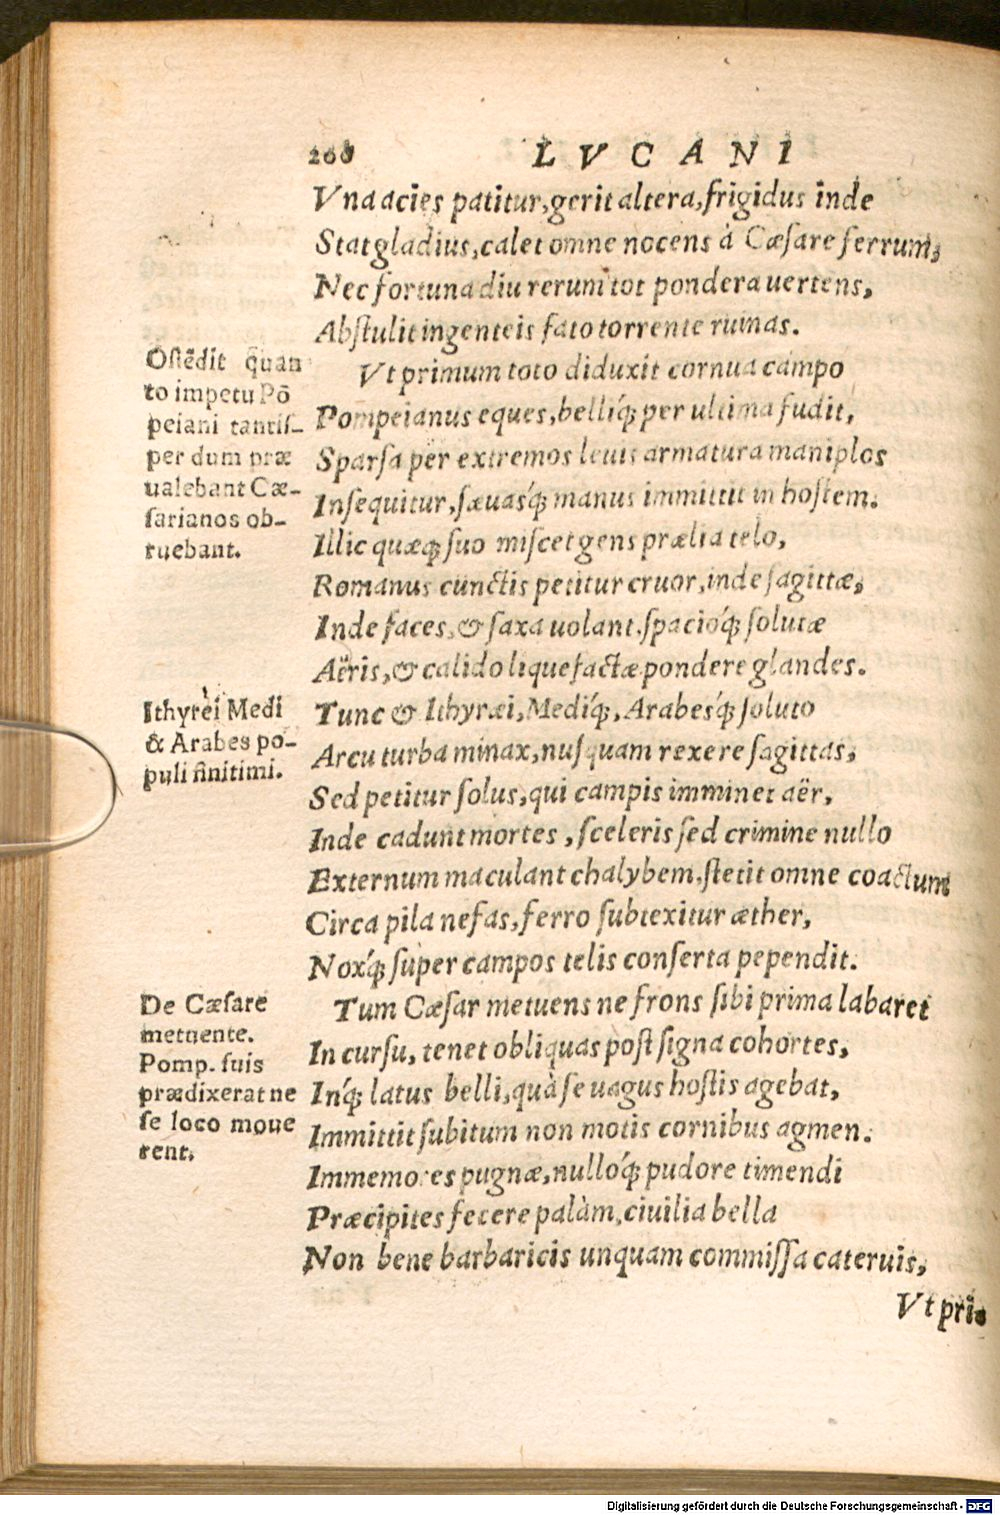 200 LVCANI
Vna acies patitur, gerit altera, frigidus inde
Stat gladius, calet omne nocens à Cæsare ferrum,
Nec fortuna diu rerum tot pondera uertens,
Abstulit ingenteis fato torrente ruinas.
Ostēdit quan
to impetu Pō
peiani tantis-
per dum præ
ualebant Cæ-
sarianos ob-
ruebant.
Vt primum toto diduxit cornua campo
Pompeianus eques, belliq́; per ultima fudit,
Sparsa per extremos leuis armatura maniplos
Insequitur, sæuasq́; manus immittit in hostem.
Illic quæq; suo miscet gens prælia telo,
Romanus cunctis petitur cruor, inde sagittæ,
Inde faces, & saxa uolant. spacioq́; solutæ
Aëris, & calido liquefactæ pondere glandes.
Ithyrei Medi
& Arabes po-
puli finitimi.
Tunc & Ithyræi, Mediq́;, Arabesq́; soluto
Arcu turba minax, nusquam rexere sagittas,
Sed petitur solus, qui campis imminet aër,
Inde cadunt mortes, sceleris sed crimine nullo
Externum maculant chalybem. stetit omne coactum
Circa pila nefas, ferro subtexitur æther,
Noxq́; super campos telis conserta pependit.
De Cæsare
metuente.
Pomp. suis
prædixerat ne
se loco moue
rent.
Tum Cæsar metuens ne frons sibi prima labaret
In cursu, tenet obliquas post signa cohortes,
Inq́; latus belli, quà se uagus hostis agebat,
Immittit subitum non motis cornibus agmen.
Immemores pugnæ, nulloq́; pudore timendi
Præcipites fecere palàm, ciuilia bella
Non bene barbaricis unquam commissa cateruis,
Vt pri-
Digitalisierung gefördert durch die Deutsche Forschungsgemeinschaft - DFG